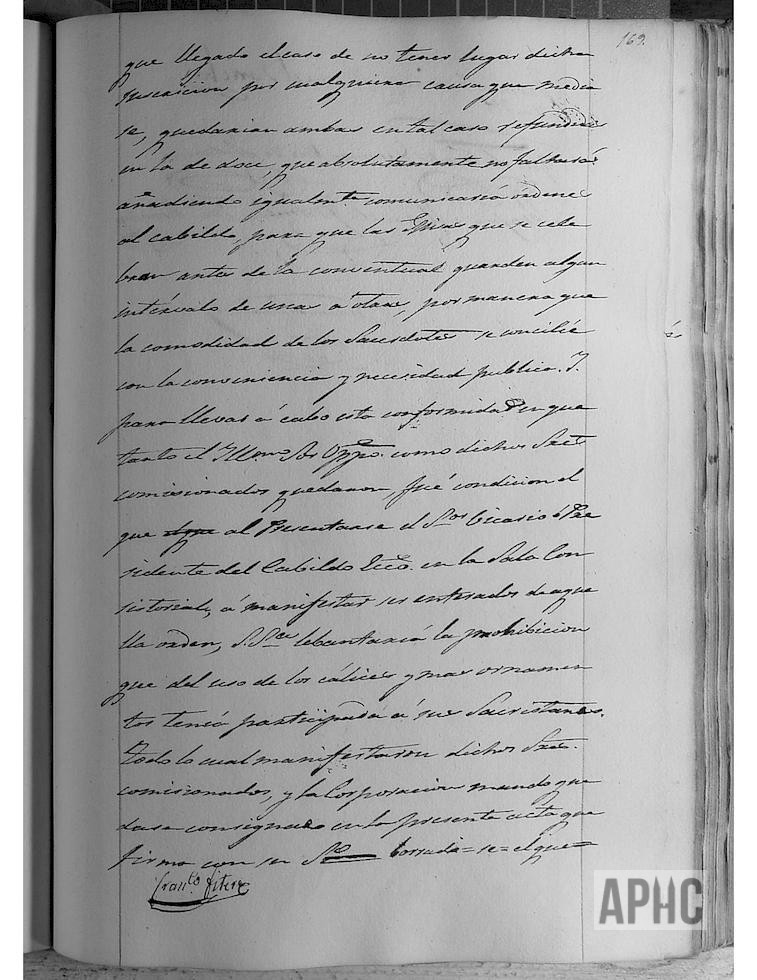 169.
que llegado el caso de no tener lugar dicha
por cualquiera causa que media
se, quedarian ambas en tal caso refundidas
en la de doce, que absolutamente no faltará:
añadiendo igualmte comunicaría órdenes
al cabildo, para que las Misas que se cele
bran antes de la conventual guarden algun
intérvalo de unas á otras, por manera que
la comodidad de los Sacerdotes se concilie
con la conveniencia y necesidad publica. Y
para llevar á cabo esta conformidad en que
tanto el Yllmo Sor Obpo. como dichos Sres
comisionados quedaron, fué condicion el
que al Presentarse el Sor Vicario ó Pre
sidente del Cabildo Ecco. en la Sala Con
sistorial, á manifestar ser enterados de aque
lla orden, S.Sa lebantaría la prohibicion
que del uso de los cálices y mas ornamen
tos tenía participada á sus Sacristanes.
todo lo cual manifestaron dichos Sres.
comisionados, y la Corporacion mandó que
dase consignado en la presente acta que
firma con su Srio borrado = se = el que =
Franco Fitero
APHC